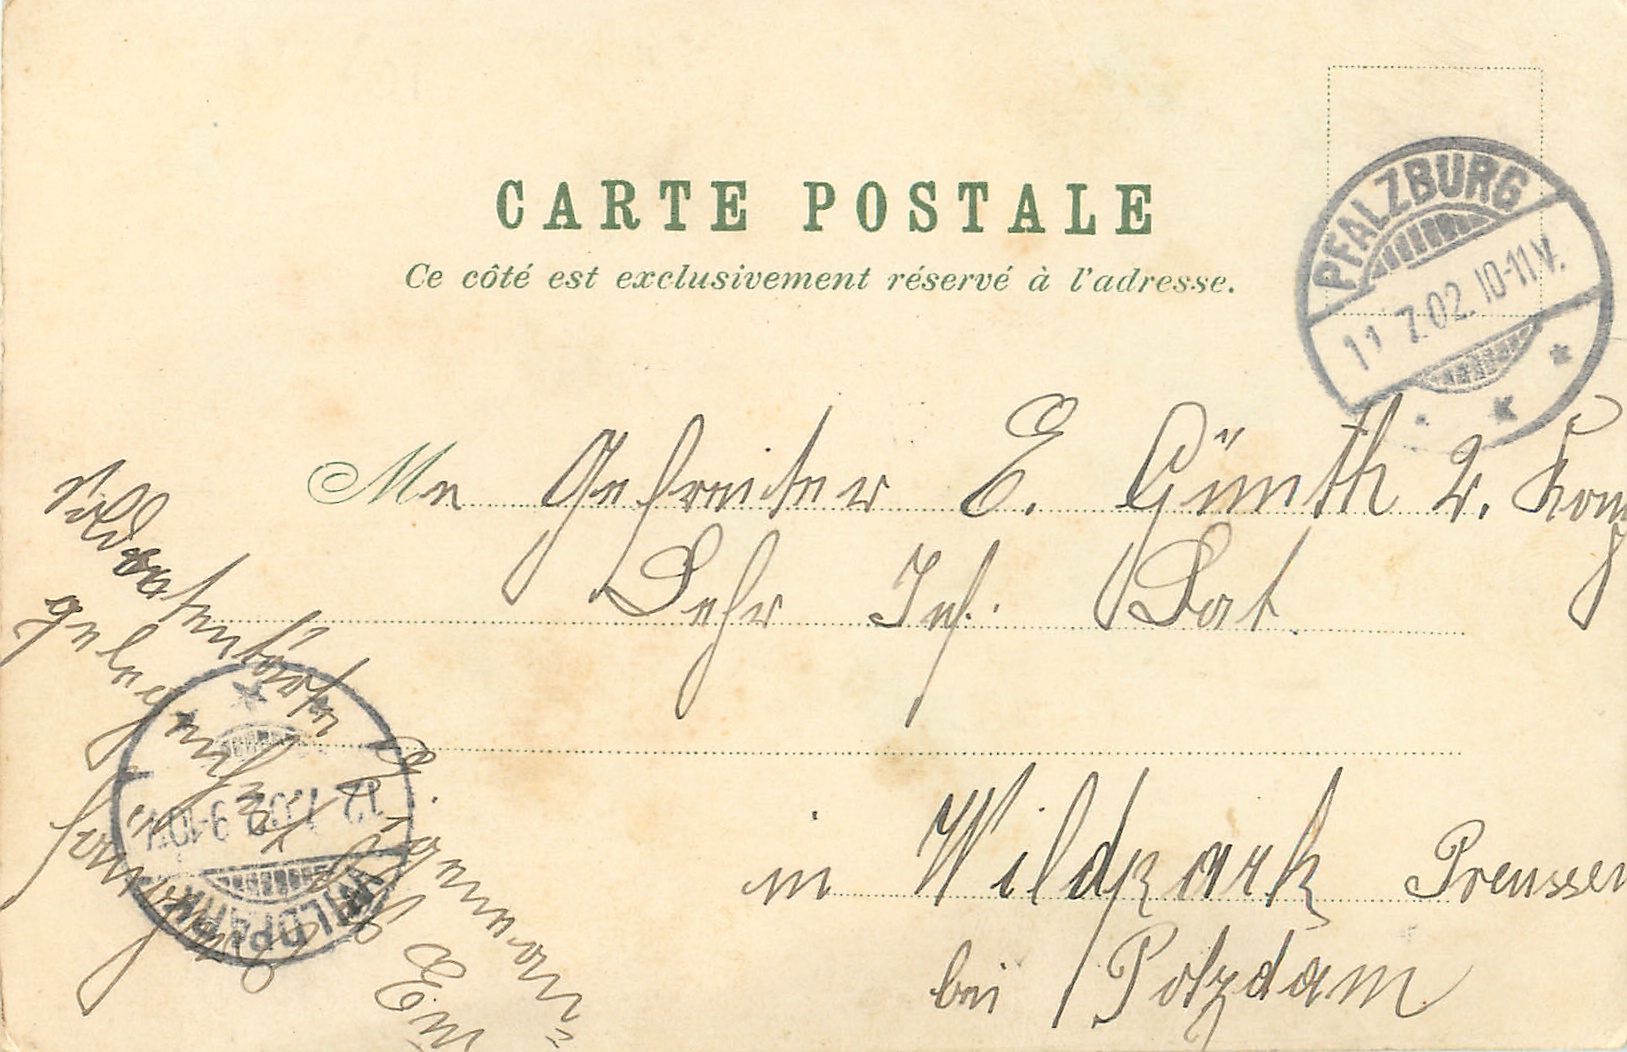 CARTE POSTALE
Ce côté est exclusivement réservé à l'adresse.
PFALZBURG
11 7.02. 10-11V.
M
Gefreiter E. Günth 2. Komp
Lehr Inf. Bat.
in Wildpark Preussen
bei Potzdam
Soldatenbrief
Eigene
WILDPARK
12 7.02 9-10V.